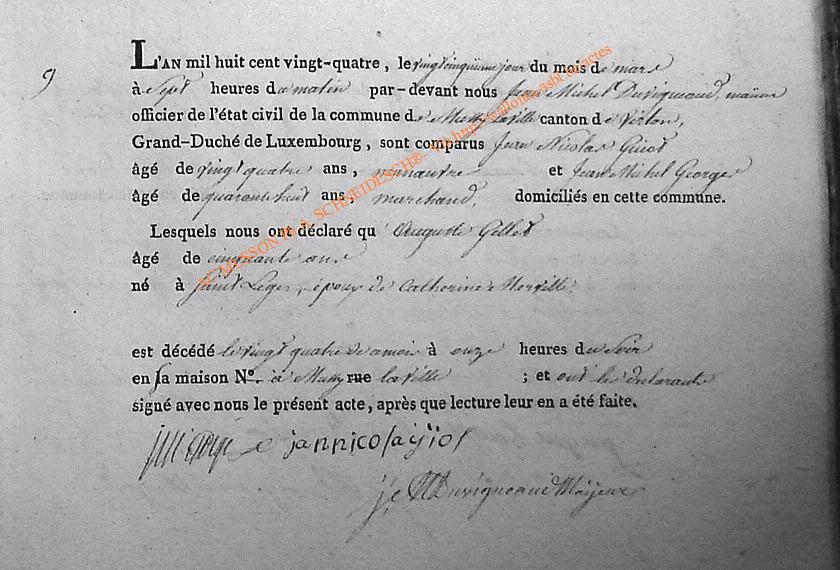 9
L'AN mil huit cent vingt-quatre, le vingt cinquieme jour du mois de mars
à Sept heures du matin par-devant nous Jean Michel Duvigneaud, maieur
officier de l'état civil de la commune de Mussy la ville canton de Virton,
Grand-Duché de Luxembourg, sont comparus Jean Nicolas Guiot
âgé de vingt quatre ans, manœuvre et Jean Michel George
âgé de quarante huit ans, marchand, domiciliés en cette commune.
Lesquels nous ont déclaré qu' Auguste Gillet
âgé de cinquante ans
né à Saint Leger, époux de Catherine
est décédé le vingt quatre de ce mois à onze heures du Soir
en sa maison N.o à Mussy rue la ville ; et ont les declarants
signé avec nous le présent acte, après que lecture leur en a été faite.
jannicolas
Duvigneaud Mayeur